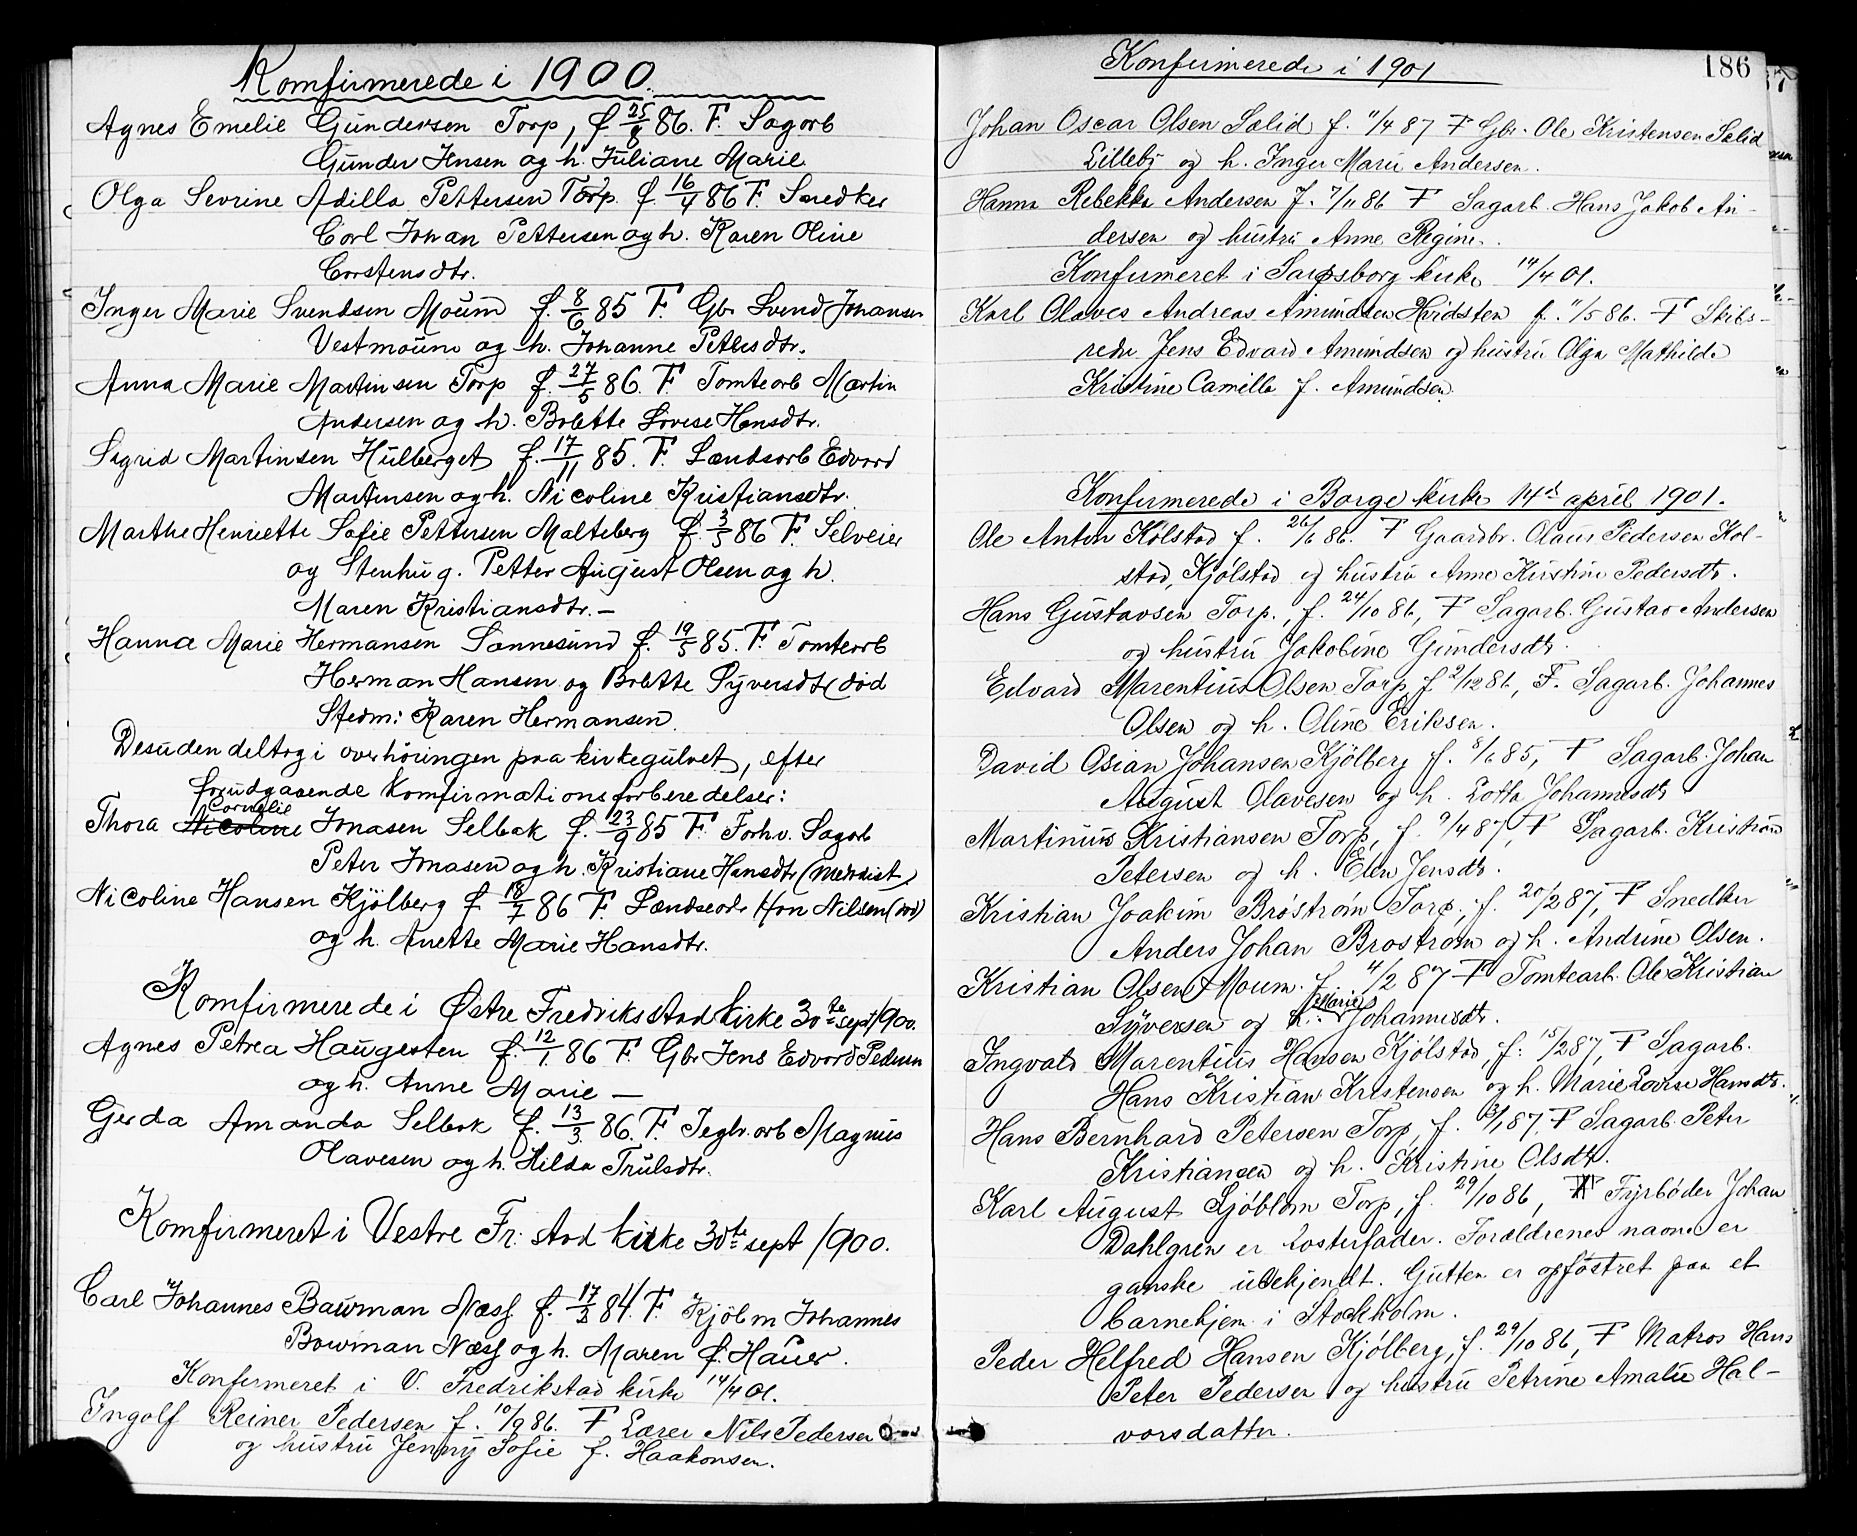 Komfirmerede i 1900.
Agnes Emelie Gundersen Torp, f 25/8 86. F. Sagarb
Gunder Jensen og h. Juliane Marie
Olga Sevrine Adilla Pettersen Torp. f 16/4 86 F. Snedker
Carl Johan Pettersen og h. Karen Oline
Corstensdtr.
Inger Marie Svendsen Moum f. 8/6 85 F. Gbr Svend Johansen
Vestmoum og h. Johanne Pettersdtr.
Anna Marie Martinsen Torp f. 27/5 86. F. Tomtearb Martin
Andersen og h. Bolette Lovese Hansdtr.
Sigrid Martinsen Hulberget f. 17/11 85. F. Landsarb Edvard
Martinsen og h. Nicoline Kristiansdtr.
Marthe Henriette Sofie Pettersen Malteberg f. 3/5 86 F. Selveier
og Stenhug. Petter August Olsen og h.
Maren Kristiansdtr. —
Hanna Marie Hermansen Sannesund f. 19/5 85. F. Tomtearb
Herman Hansen og Bolette Syversdtr (død
Stedm: Karen Hermansen.
Desuden deltog i overhøringen paa kirkegulvet, efter
forudgaaende Komfirmationsforberedelser:
Cornelie
Thora Nicoline Jonasen Selbak f. 23/9 85 F. Forhv. Sagarb
Peter Jonasen og h. Kristiane Hansdtr (Methodist)
Nicoline Hansen Kjölberg f 18/7 86 F. Landseodr Hon Nilsen (død)
og h. Anette Marie Hansdtr.
Komfirmerede i Østre Fredriksstad Kirke 30te sept 1900.
Agnes Petrea Haugesten f. 12/1. 86 F. Gbr Jens Edvard Pedersen
og h. Anne Marie —
Gerda Amanda Selbak f. 13/3 86. F. Teglv. arb Magnus
Olavesen og h. Hilda Trulsdtr.
Komfirmeret i Vestre Fr: stad kirke 30te sept 1900.
Carl Johannes Bauman Næss f. 17/3 84. F. Kjöbm Johannes
Bowman Næss og h. Maren f. Hauer.
Konfirmeret i V. Fredrikstad kirke 14/4 01.
Ingolf Reiner Pedersen f. 10/9 86. F Lærer Nils Pedersen
og hustru Jenny Sofie f. Haakonsen.
186
Konfirmerede i 1901
Johan Oscar Olsen Solid f. 11/4 87 F Gbr. Ole Kristensen Solid
Lilleby og h. Inger Marie Andersen.
Hanna Rebekka Andersen f. 7/11 86 F Sagarb. Hans Jakob An-
dersen og hustru Anne Regine.
Konfirmeret i Sarpsborg kirke 14/4 01.
Karl Olaves Andreas Amundsen Hvidsten f. 11/5 86. F Skibs-
reder Jens Edvard Amundsen og hustru Olga Mathilde
Kristine Camilla f. Amundsen.
Konfirmerede i Borge kirke 14de april 1901.
Ole Anton Kolstad f. 26/6 86. F Gaardbr. Olaus Pedersen Kol-
stad, Kjölstad og hustru Anne Kirstine Pedersdtr.
Hans Gustavsen Torp., f. 24/10 86, F Sagarb. Gustav Andersen
og hustru Jakobine Gundersdtr.
Edvard Marentius Olsen Torp, f 2/12 86, F. Sagarb. Johannes
Olsen og h. Oline Eriksen.
David Osian Johansen Kjölberg f. 8/6 85, F Sagarb. Johan
August Olavesen og h. Lotta Johannesdtr
Martinius Kristiansen Torp, f. 9/4 87, F Sagarb. Kristian
Petersen og h. Elen Jensdtr.
Kristian Joakim Broström Torp, f. 20/2 87, F Snedker
Anders Johan Broström og h. Andrine Olsen.
Kristian Olsen Moum. f 4/2 87 F Tomtearb. Ole Kristian
Marie
Syversen og h. Johannesdtr.
Ingvald Marentius Hansen Kjölstad, f: 15/2 87, F Sagarb.
Hans Kristian Kristensen og h. Marie Lovise Hansdtr.
Hans Bernhard Petersen Torp, f. 13/1 87, F Sagarb. Peter
Kristiansen og h. Kristine Olsdtr.
Karl August Sjöblom Torp, f. 29/10 86, Fyrböder Johan
Dahlgren er Fosterfader. Forældrenes navne er
ganske ubekjendt. Gutten er opföstret paa et
barnehjem i Stockholm.
Peder Helfred Hansen Kjölberg, f. 29/10 86, F Matros Hans
Peter Pedersen og hustru Petrine Amalie Hal-
vorsdatter.